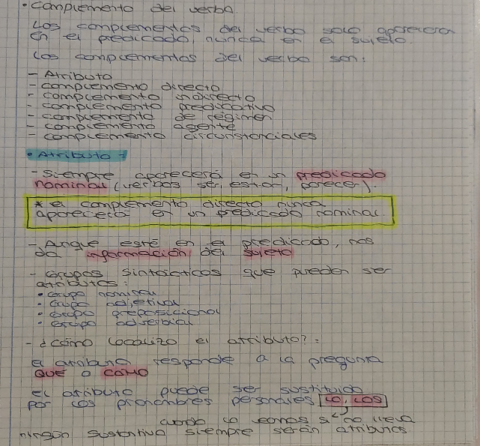 • Complemento del verbo
Los complementos del verbo solo aparecen
en el predicado, nunca en el sujeto.
Los complementos del verbo son:
- Atributo
- complemento directo
- complemento indirecto
- complemento predicativo
- complemento de régimen
- complemento agente
- complemento circunstanciales
• Atributo -
- Siempre aparecerá en un predicado
nominal (verbos ser, estar, parecer).
* el complemento directo nunca
aparecerá en un predicado nominal
- Anque esté en el predicado, nos
da información del sujeto
- Grupos sintácticos que pueden ser
atributos:
• Grupo nominal
• Grupo adjetival
• Grupo preposicional
• Grupo adverbial
- ¿Cómo localizo el atributo?:
el atributo responde a la pregunta
QUE o COMO
el atributo puede ser sustituido
por los pronombres personales lo, los
cuando lo no lleva
ningún sustantivo siempre serán atributos